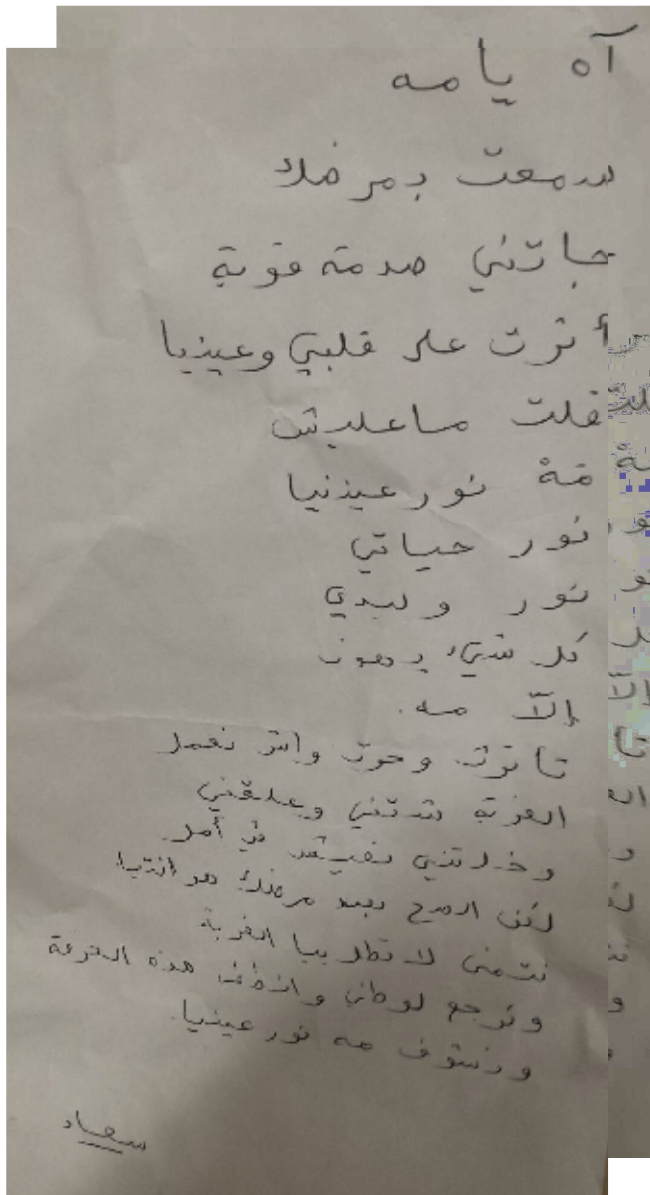 آه يا مه
سمعت بمرضك
جاتني صدمة قوية
أثرت على قلبي وعينيا
قلت ماعليش
مّهْ نور عينيا
نور حياتي
نور وليدي
كل شيء يهون
إلاّ مه.
تأثرت وحرت واش نعمل
الغربة شدتني وعلقتني
وخلاتني نعيش في أمل
لكن الصح بعد مرضك هو انتيا
نتمنى لا تطول بيا الغربة
ونرجع لوطاني وانطفي هذه الحرقة
ونشوف مه نور عينيا.
سعاد